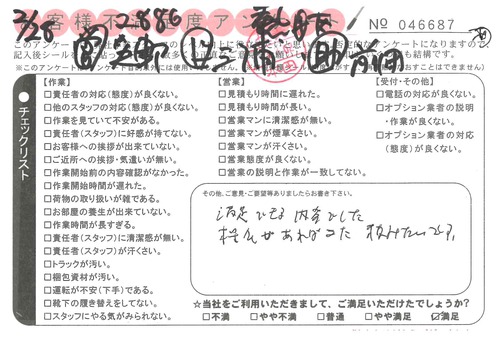 3/28
お客様不満足度アン
No 046687
このアンケートは
※このアンケートは
● チェックリスト
【作業】
□責任者の対応(態度)が良くない。
□他のスタッフの対応(態度)が良くない。
□作業を見ていて不安がある。
□責任者(スタッフ)に好感が持てない。
□お客様への挨拶が出来ていない。
□ご近所への挨拶・気遣いが無い。
□作業開始前の内容確認がなかった。
□作業開始時間が遅れた。
□荷物の取り扱いが雑である。
□お部屋の養生が出来ていない。
□作業時間が長すぎる。
□責任者(スタッフ)に清潔感が無い。
□責任者(スタッフ)が汗くさい。
□トラックが汚い。
□梱包資材が汚い。
□運転が不安(下手)である。
□靴下の履き替えをしてない。
□スタッフにやる気がみられない。
【営業】
□見積もり時間に遅れた。
□見積もり時間が長い。
□営業マンに清潔感が無い。
□営業マンが煙草くさい。
□営業マンが汗くさい。
□営業態度が良くない。
□営業の説明と作業が一致してない。
【受付・その他】
□電話の対応が良くない。
□オプション業者の説明
・作業が良くない。
□オプション業者の対応
(態度)が良くない。
その他、ご意見・ご要望等ありましたらお書き下さい。
満足できる内容でした
機会があればまた頼みたいです。
☆当社をご利用いただきまして、ご満足いただけたでしょうか?
□不満 □やや不満 □普通 □やや満足 ☑満足